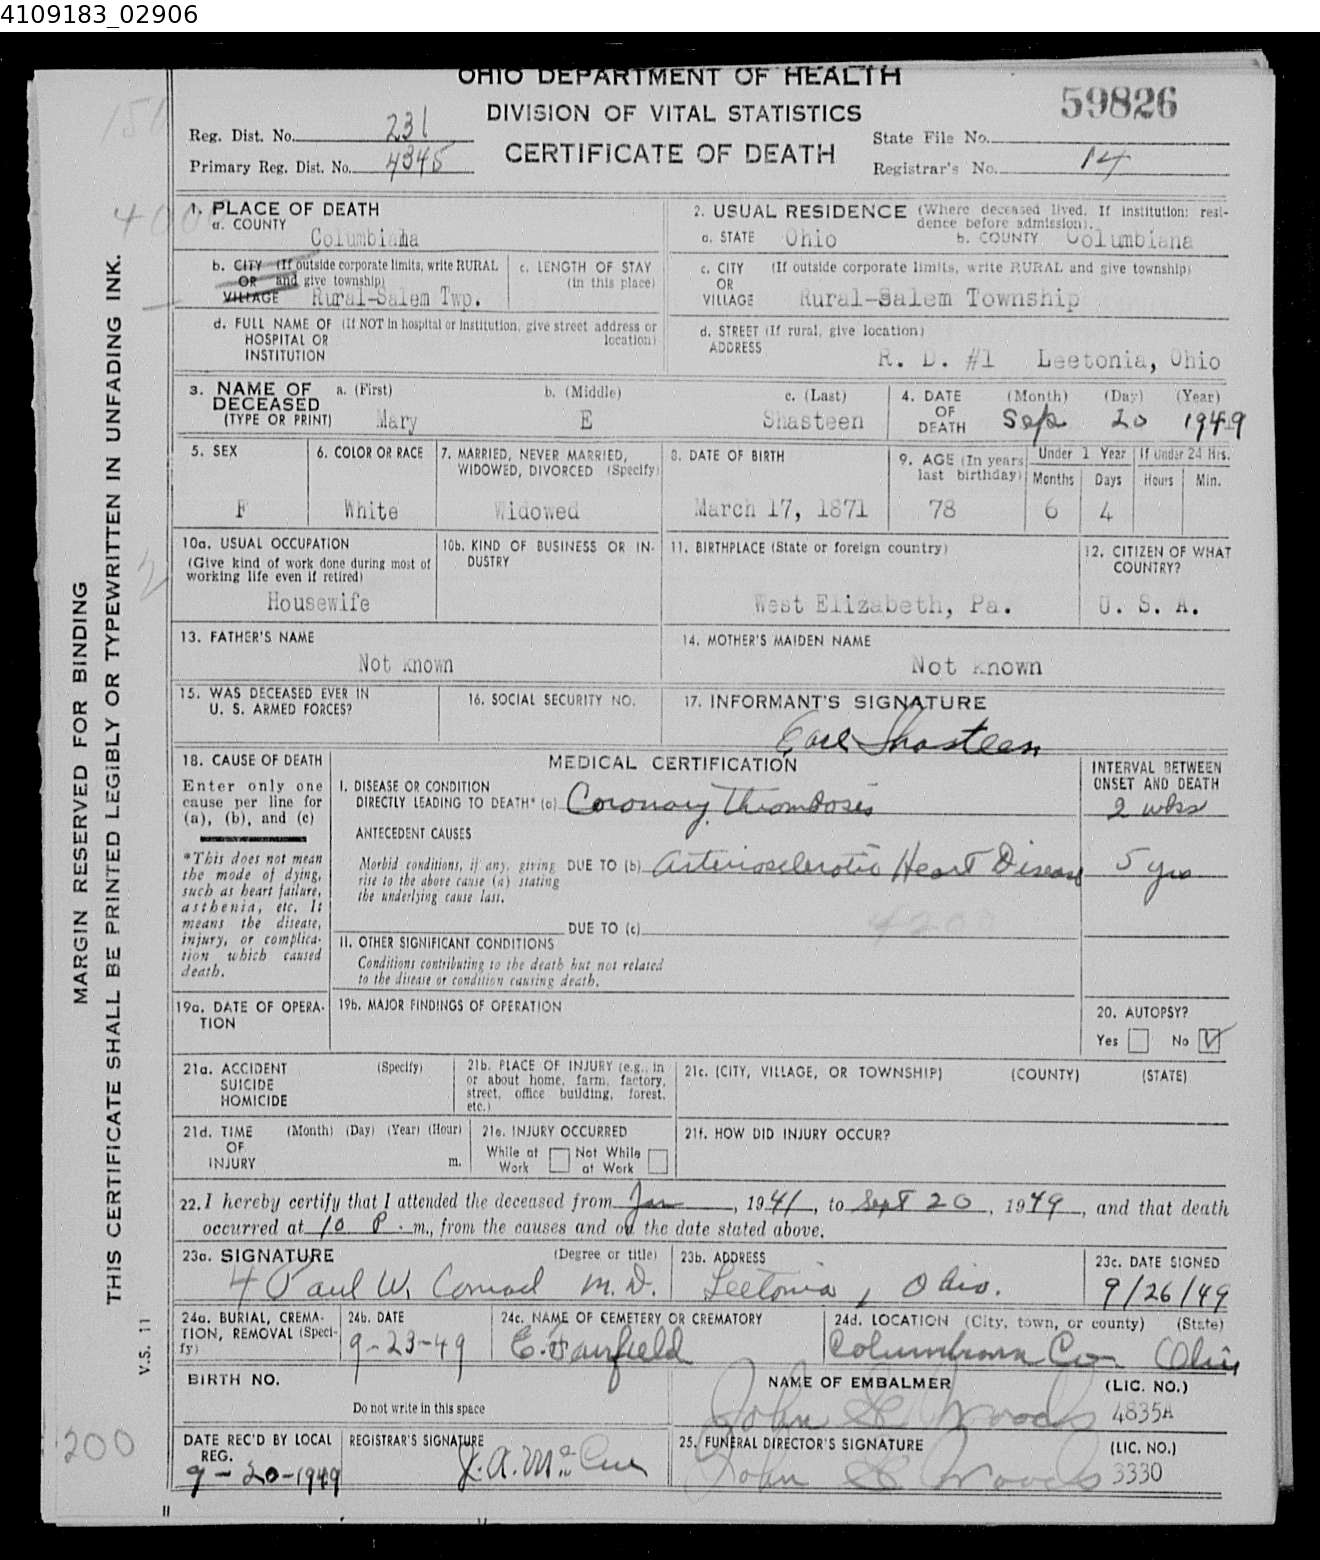 4109183_02906
OHIO DEPARTMENT OF HEALTH
DIVISION OF VITAL STATISTICS
CERTIFICATE OF DEATH
59826
Reg. Dist. No. 231
Primary Reg. Dist. No. 4345
State File No.
Registrar's No. 14
1. PLACE OF DEATH
a. COUNTY
Columbiana
2. USUAL RESIDENCE (Where deceased lived. If institution: resi-
dence before admission).
a. STATE Ohio b. COUNTY Columbiana
b. CITY (If outside corporate limits, write RURAL
OR and give township)
VILLAGE Rural-Salem Twp.
c. LENGTH OF STAY
(in this place)
c. CITY (If outside corporate limits, write RURAL and give township)
OR
VILLAGE Rural-Salem Township
d. FULL NAME OF (If NOT in hospital or institution, give street address or
HOSPITAL OR location)
INSTITUTION
d. STREET (If rural, give location)
ADDRESS
R. D. #1 Leetonia, Ohio
3. NAME OF DECEASED
(TYPE OR PRINT)
a. (First) b. (Middle) c. (Last)
Mary E Shasteen
4. DATE OF DEATH
(Month) (Day) (Year)
Sep 20 1949
5. SEX
F
6. COLOR OR RACE
White
7. MARRIED, NEVER MARRIED,
WIDOWED, DIVORCED (Specify)
Widowed
8. DATE OF BIRTH
March 17, 1871
9. AGE (In years
last birthday)
78
Under 1 Year
Months Days
6 4
If Under 24 Hrs.
Hours Min.
10a. USUAL OCCUPATION
(Give kind of work done during most of
working life even if retired)
Housewife
10b. KIND OF BUSINESS OR IN-
DUSTRY
11. BIRTHPLACE (State or foreign country)
West Elizabeth, Pa.
12. CITIZEN OF WHAT
COUNTRY?
U. S. A.
13. FATHER'S NAME
Not known
14. MOTHER'S MAIDEN NAME
Not known
15. WAS DECEASED EVER IN
U. S. ARMED FORCES?
16. SOCIAL SECURITY NO.
17. INFORMANT'S SIGNATURE
Earl Shasteen
18. CAUSE OF DEATH
Enter only one
cause per line for
(a), (b), and (c)
*This does not mean
the mode of dying,
such as heart failure,
asthenia, etc. It
means the disease,
injury, or complica-
tion which caused
death.
MEDICAL CERTIFICATION
I. DISEASE OR CONDITION
DIRECTLY LEADING TO DEATH* (a) Coronary Thrombosis
ANTECEDENT CAUSES
Morbid conditions, if any, giving
rise to the above cause (a) stating
the underlying cause last.
DUE TO (b) Arteriosclerotic Heart Disease
DUE TO (c)
420
II. OTHER SIGNIFICANT CONDITIONS
Conditions contributing to the death but not related
to the disease or condition causing death.
INTERVAL BETWEEN
ONSET AND DEATH
2 wks
5 yrs
19a. DATE OF OPERA-
TION
19b. MAJOR FINDINGS OF OPERATION
20. AUTOPSY?
Yes No
21a. ACCIDENT (Specify)
SUICIDE
HOMICIDE
21b. PLACE OF INJURY (e.g., in
or about home, farm, factory,
street, office building, forest,
etc.)
21c. (CITY, VILLAGE, OR TOWNSHIP) (COUNTY) (STATE)
21d. TIME (Month) (Day) (Year) (Hour)
OF
INJURY m.
21e. INJURY OCCURRED
While at Work Not While at Work
21f. HOW DID INJURY OCCUR?
22. I hereby certify that I attended the deceased from Jan, 1941, to Sept 20, 1949, and that death
occurred at 10 P. m., from the causes and on the date stated above.
23a. SIGNATURE (Degree or title)
Paul W. Conrad M.D.
23b. ADDRESS
Leetonia, Ohio.
23c. DATE SIGNED
9/26/49
24a. BURIAL, CREMA-
TION, REMOVAL (Speci-
fy)
24b. DATE
9-23-49
24c. NAME OF CEMETERY OR CREMATORY
E. Fairfield
24d. LOCATION (City, town, or county) (State)
Columbiana Co Ohio
BIRTH NO.
Do not write in this space
NAME OF EMBALMER (LIC. NO.)
John S. Woods 4835A
DATE REC'D BY LOCAL
REG.
9-20-1949
REGISTRAR'S SIGNATURE
J.A. McCue
25. FUNERAL DIRECTOR'S SIGNATURE (LIC. NO.)
John S. Woods 3330
MARGIN RESERVED FOR BINDING
THIS CERTIFICATE SHALL BE PRINTED LEGIBLY OR TYPEWRITTEN IN UNFADING INK.
V.S. 11
200